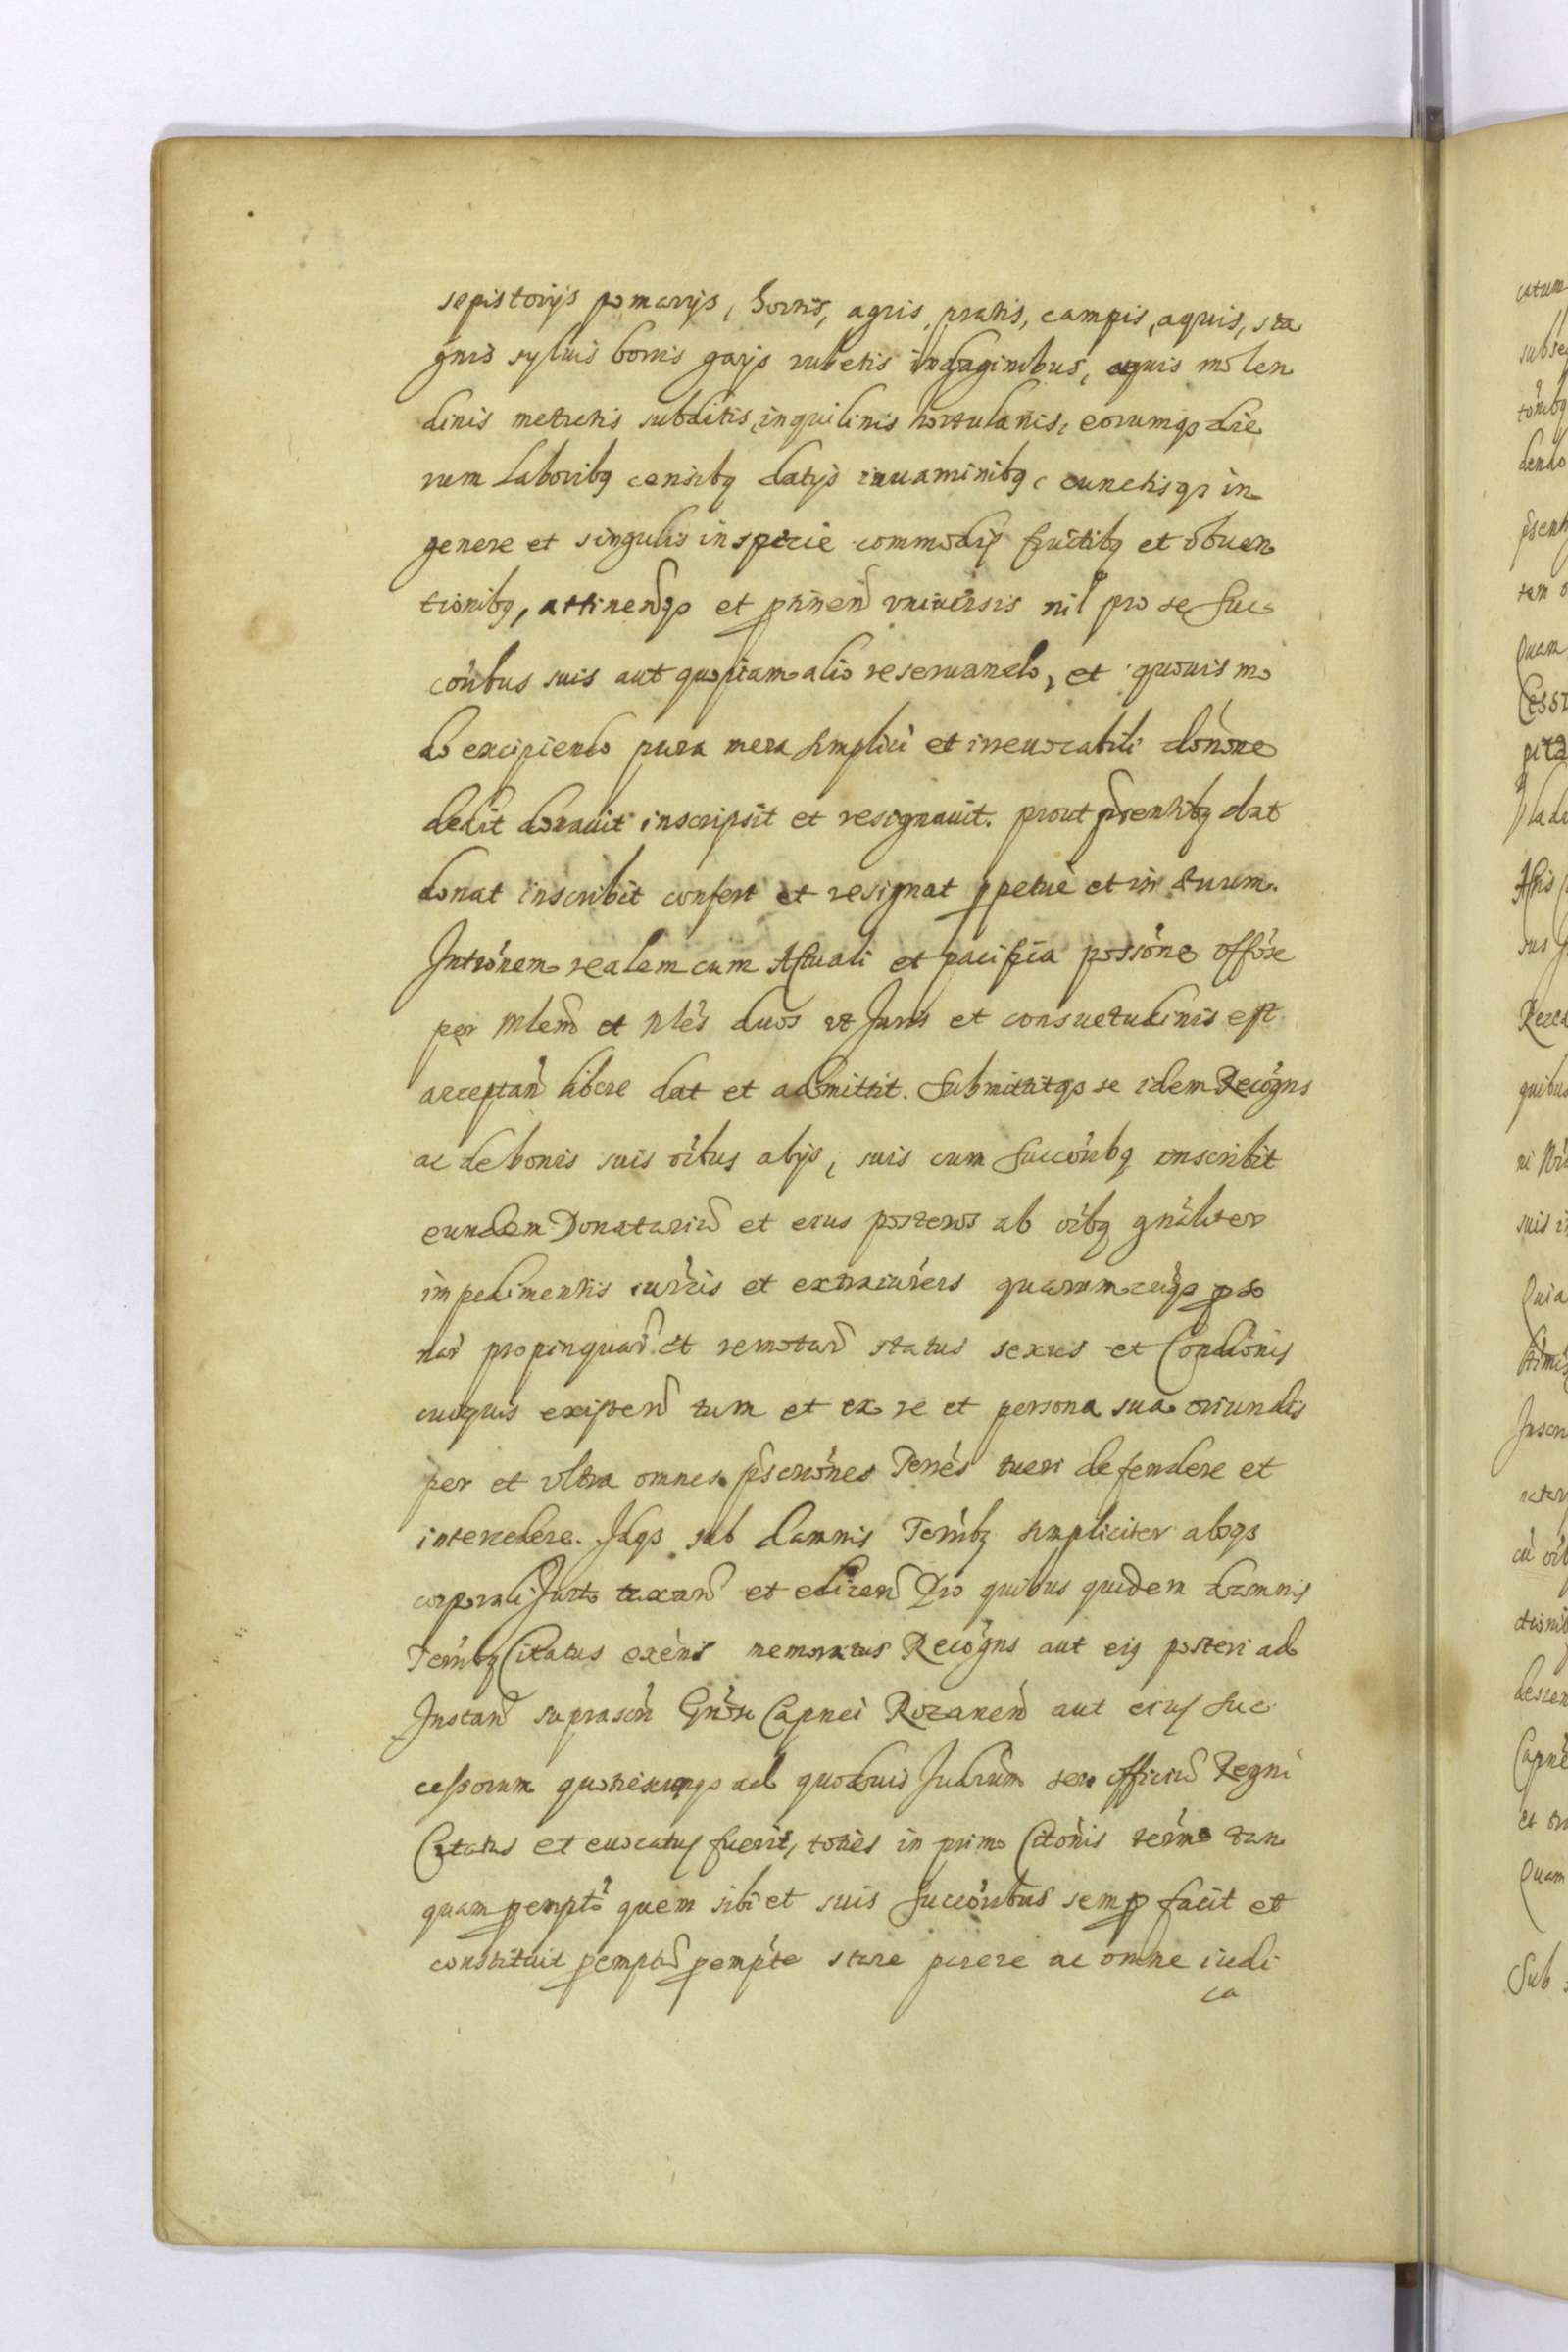 sepistorijs pomarijs, hortis, agris, pratis, campis, aquis, sta
gnis syluis borris gaijs rubetis indaginibus, aquis molen
dinis metretis subditis, inquilinis hortulanis, eorumqs die
rum Laboribq censibq datijs iuuaminibq, cunctisqs in
genere et singulis in specie commodis fructibq et obuen
tionibq, attinendqs et ptinen vniuersis nil pro se Suc
coribus suis aut quopiam alio reseruando, et quouis mo
do excipiendo pura mera simplici et irreuocabili donone
dedit donauit inscripsit et resignauit. prout psentibq dat
donat inscribit confert et resignat ppetuè et in æuum.
Intronem realem cum Actuali et pacifica possione offose
per mlem et nles duos vt Juris et consuetudinis est
acceptan libere dat et admittit. Submittitqs se idem Recogns
ac de bonis suis oibus alijs, suis cum Succoribq inscribit
eundem Donatariu et eius posteros ab oibq gnaliter
impedimentis iurcis et extraiureis quarumcuqs pso
nar propinquar et remotar status sexus et Condionis
cuiquis existen tum et ex re et persona sua oriundis
per et vltra omnes pscriones Terres tueri defendere et
intercedere. Idqs sub damnis Terribq simpliciter absqs
corporali Jurto taxan et edicen Pro quibus quidem damnis
Terribq Citatus exens memoratus Recogns aut eiq posteri ad
Instan suprascri Gnosi Capnei Rozanen aut eiuq Suc
cessorum quotiescunqs ad quoduis Judium seu officiu Regni
Citatus et euocatuq fuerit, toties in primo Citonis termo tan
quam pempto quem sibi et suis Succoribus semp facit et
constituit pemptu pempte stare parere ac omne iudi
ca